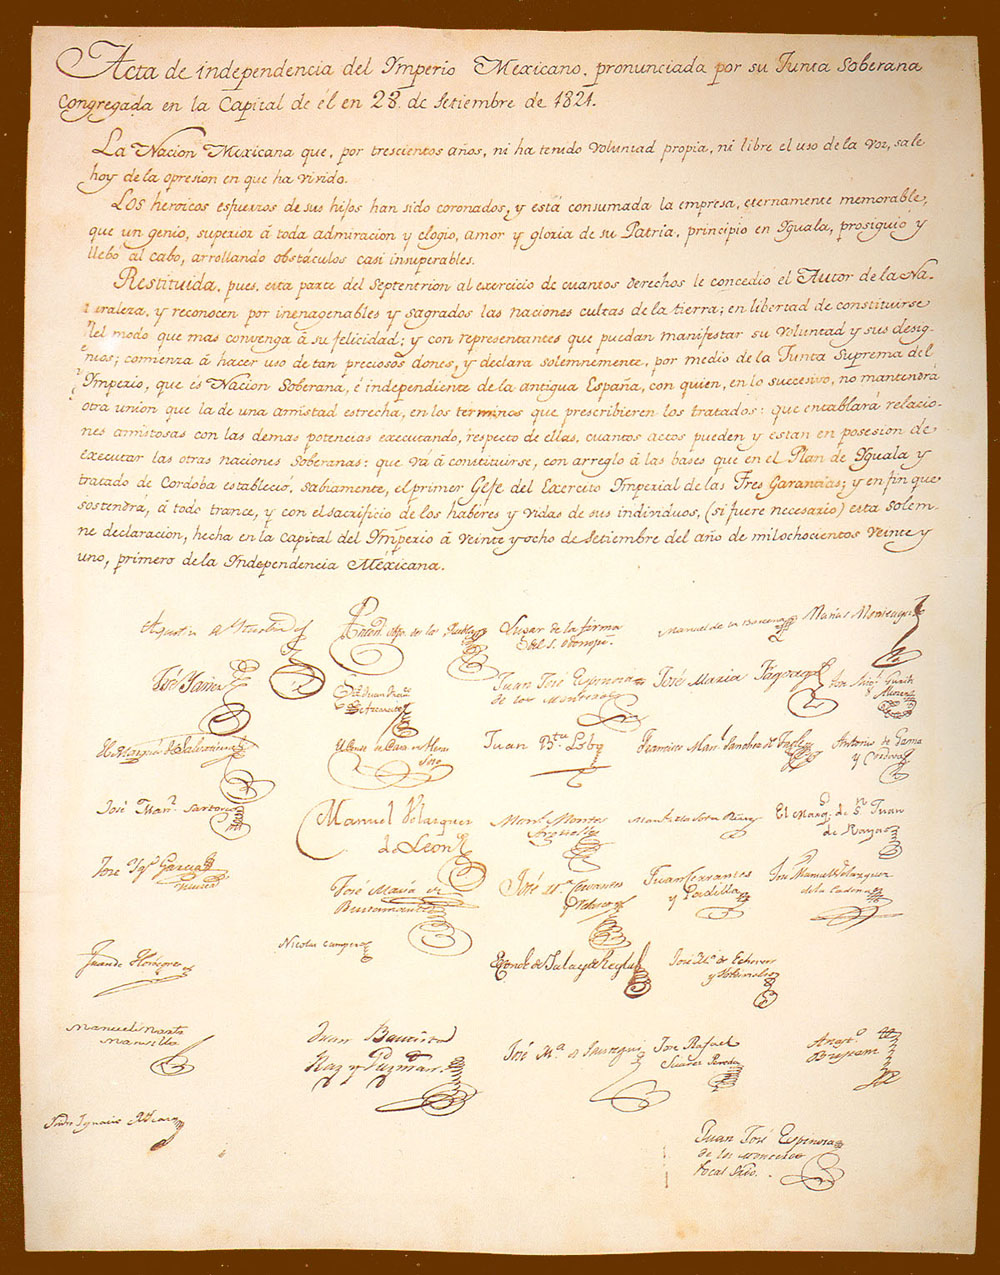 Acta de independencia del Ymperio Mexicano, pronunciada por su Junta Soberana
congregada en la Capital de él en 28. de Setiembre de 1821.
La Nacion Mexicana que, por trescientos años, ni ha tenido voluntad propia, ni libre el uso de la voz, sale
hoy de la opresion en que ha vivido.
Los heroicos esfuerzos de sus hijos han sido coronados, y está consumada la empresa, eternamente memorable,
que un genio, superior á toda admiracion y elogio, amor y gloria de su Patria, principió en Iguala, prosiguió y
llebó al cabo, arrollando obstáculos casi insuperables.
Restituida, pues, esta parte del Septentrion al exercicio de cuantos derechos le concedió el Autor de la Na-
turaleza, y reconocen por inenagenables y sagrados las naciones cultas de la tierra; en libertad de constituirse
del modo que mas convenga á su felicidad; y con representantes que puedan manifestar su voluntad y sus desig-
nios; comienza á hacer uso de tan preciosos dones, y declara solemnemente, por medio de la Junta Suprema del
Ymperio, que es Nacion Soberana, é independiente de la antigua España, con quien, en lo succesivo, no mantendrá
otra union que la de una amistad estrecha, en los terminos que prescribieren los tratados: que entablará relacio-
nes amistosas con las demas potencias executando, respecto de ellas, cuantos actos pueden y estan en posesion de
executar las otras naciones Soberanas: que vá á constituirse, con arreglo á las bases que en el Plan de Yguala y
tratado de Cordoba estableció, sabiamente, el primer Gefe del Exercito Ymperial de las Tres Garantías; y en fin que
sostendrá, á todo trance, y con el sacrificio de los haberes y vidas de sus individuos, (si fuere necesario) esta solem-
ne declaración, hecha en la Capital del Ymperio á veinte y ocho de Setiembre del año de mil ochocientos veinte y
uno, primero de la Independencia Méxicana.
Agustin de Iturbide
Lugar de la firma
del S. Odonojú.
Manuel de la Barcena
Matias Monteagudo
José Yañez
Juan José Espinosa
de los Monteros
José Maria Fagoaga
Juan Bta. Lobo
Francisco Manl. Sanchez de Tagle
Antonio de Gama
y Cordova
José Manl. Sartorio
Manuel Velazquez
de Leon
Manl. Montes
Argüelles
El Marqs. de Sn. Juan
de Rayas
José Ygo. Garcia
Illueca
José Maria de
Bustamante
José Ma. Cervantes
y Velasco
Juan Cervantes
y Padilla
José Manuel Velazquez
de la Cadena
Juan de Horbegoso
Nicolas Campero
El Conde de Jala y de Regla
José Ma. de Echevers
y Valdivielso
Manuel Martz.
Mansilla
Juan Bautista
Raz y Guzman
José Ma. de Jauregui
José Rafael
Suarez Pereda
Anasto.
Bustam.te
Juan José Espinosa
de los Monteros
Vocal Srio.